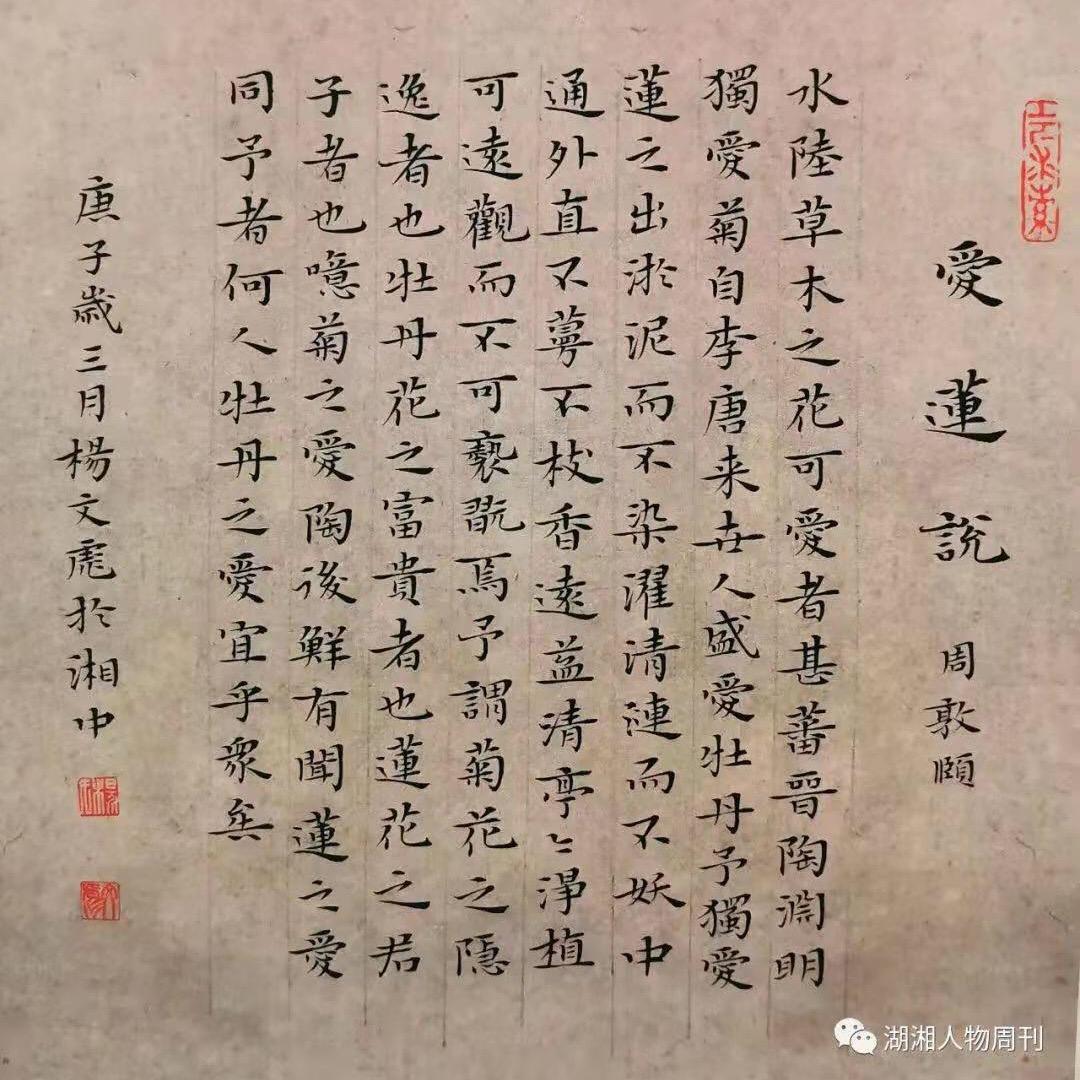 愛蓮說 周敦頤
水陸草木之花可愛者甚蕃晉陶淵明
獨愛菊自李唐来世人盛愛牡丹予獨愛
蓮之出淤泥而不染濯清漣而不妖中
通外直不蔓不枝香遠益清亭々淨植
可遠觀而不可褻翫焉予謂菊花之隱
逸者也牡丹花之富貴者也蓮花之君
子者也噫菊之愛陶後鮮有聞蓮之愛
同予者何人牡丹之愛宜乎眾矣
庚子歲三月楊文彪於湘中
湖湘人物周刊